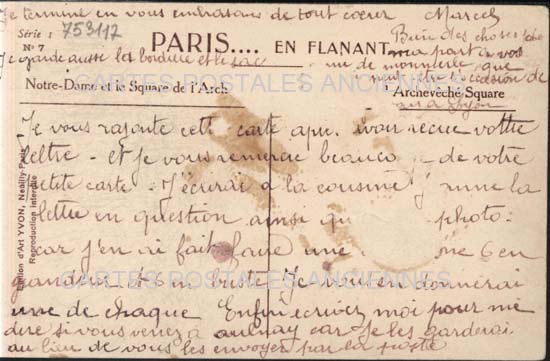 Je termine en vous embrassant de tout coeur Marcel
Série 1 753117
N° 7
PARIS.... EN FLANANT
Bien des choses
ma part à vos
Je garde aussi la bordure et le sac
de monnerie que
l'occasion de
Notre-Dame et le Square de l'Arch
Archevêché Square
CARTES POSTALES ANCIENNES
Je vous rajoute cette carte apr. avoir recue vottre
lettre - et je vous remercie beaucou de votre
petite carte. J'écrirai à la cousine
lettre en question ainsi qu photo.
car j'en ai fait faire une 6 en
grandeur et 6 en buste. Je vous en donnerai
une de chaque Enfin écrivez moi pour me
dire si vous venez à aulnay car je les garderai
au lieu de vous les envoyer par la poste
CARTES POSTALES ANCIENNES
Edition d'Art YVON, Neuilly-Paris
Reproduction interdite